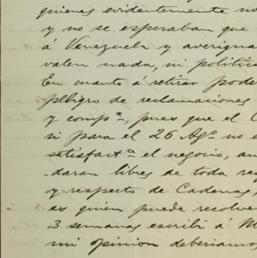 quienes evidentemente no
y no se esperaban que
á Venezuela y averigua
valen nada, ni politic
En cuanto á retirar pode
peligro de reclamaciones
y compª, pues que el C
si para el 26 Agº no e
satisfactª el negocio, au
daran libres de toda res
y respecto de Cadenas,
es quien puede resolve
3 semanas escribí á M
mi opinion deberiamos